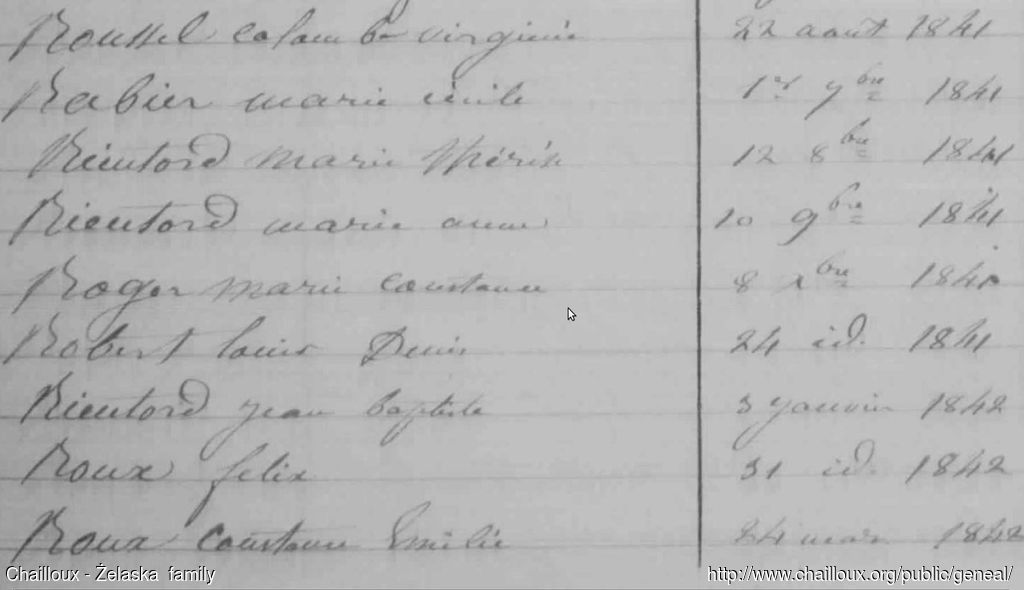 Roussel colombe virginie 22 aout 1841
Rabier marie cécile 1er 7bre 1841
Rieutord marie thérèse 12 8bre 1841
Rieutord marie anne 10 9bre 1841
Roger marie constance 8 xbre 1841
Robert louis Denis 24 id. 1841
Rieutord jean baptiste 3 janvier 1842
Roux felix 31 id. 1842
Roux constance Emilie 24 mars 1842
Chailloux - Želaska family http://www.chailloux.org/public/geneal/